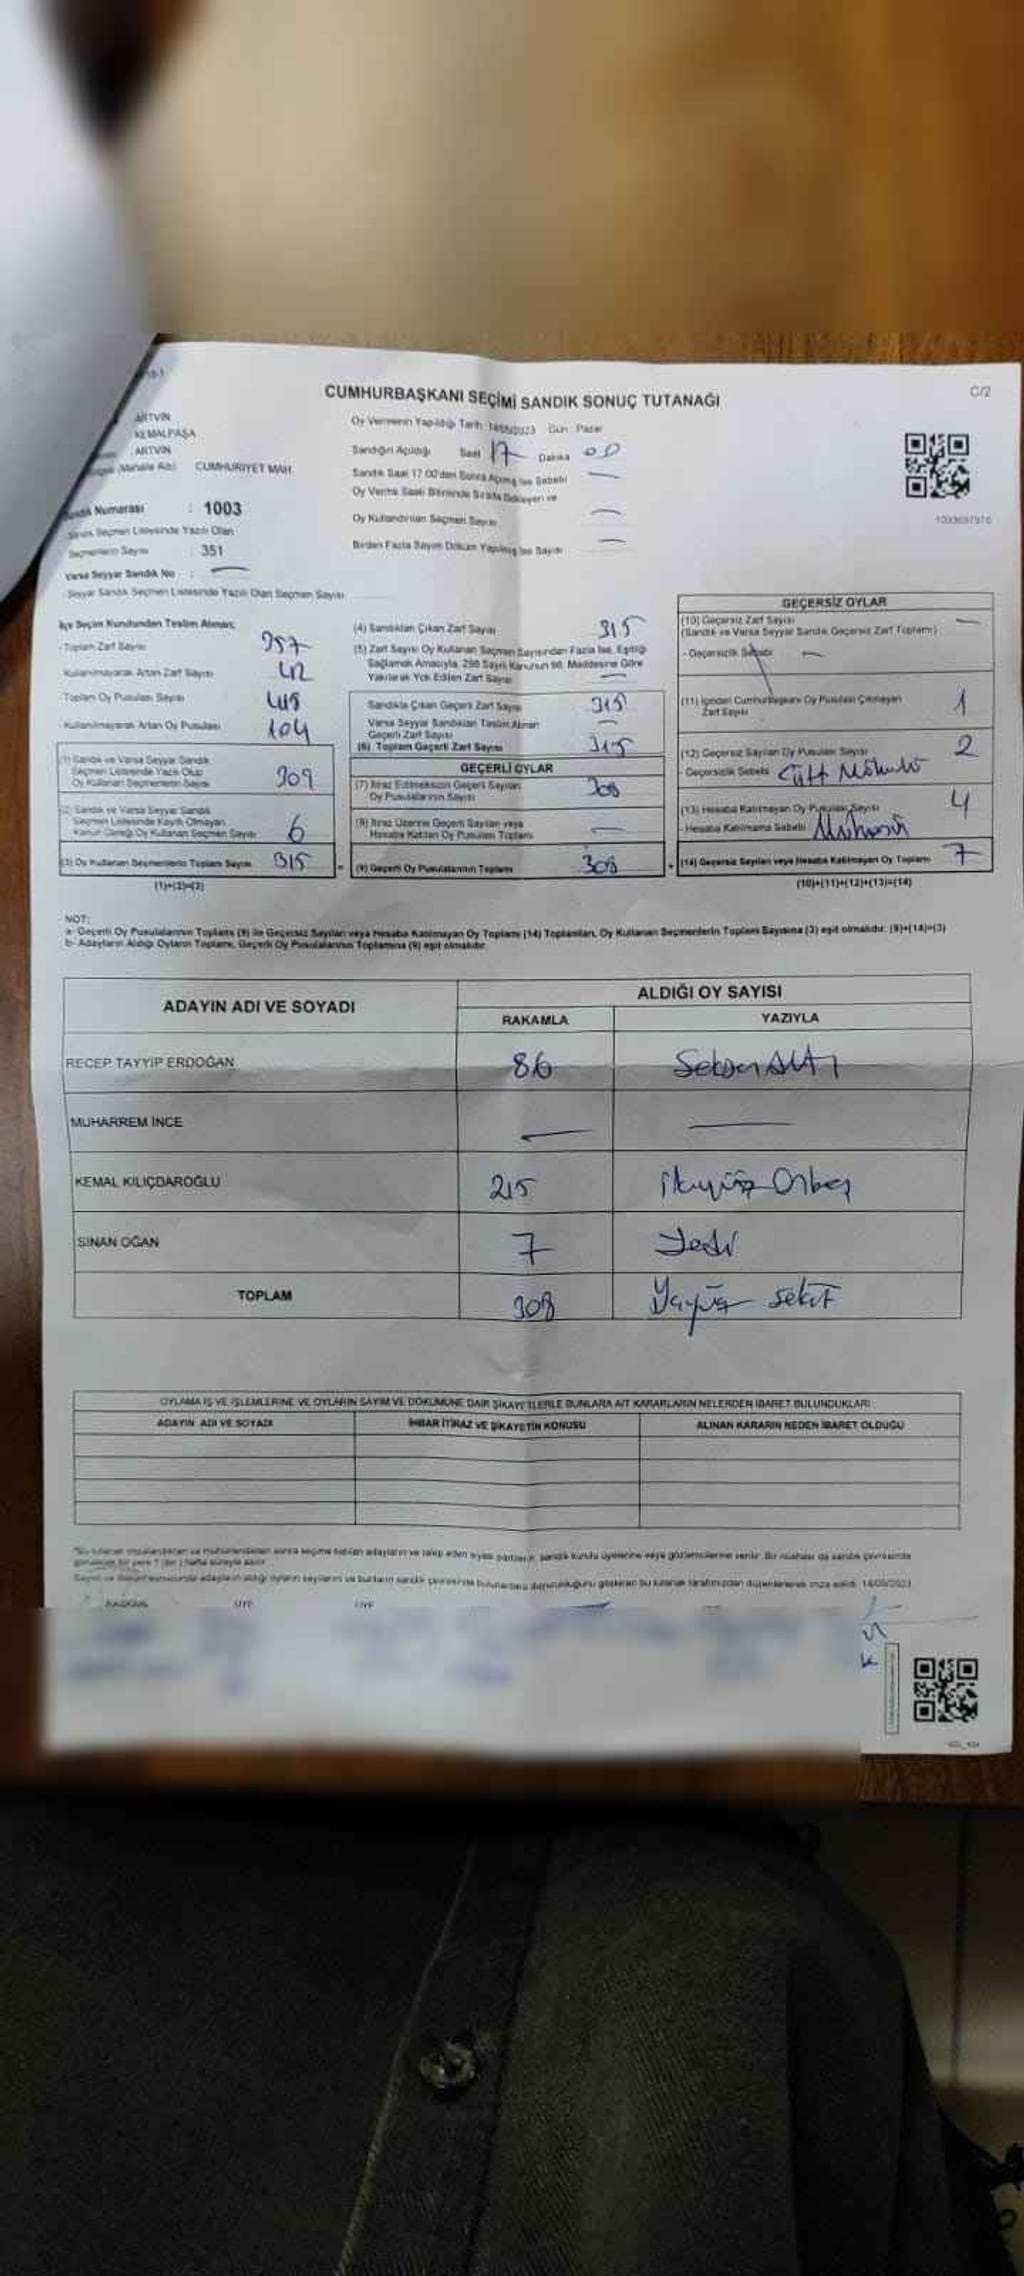 CUMHURBAŞKANI SEÇİMİ SANDIK SONUÇ TUTANAĞI
C/2
ARTVİN
KEMALPAŞA
ARTVİN
(Mahalle Adı) CUMHURİYET MAH.
Oy Vermenin Yapıldığı Tarih 14/05/2023 Gün: Pazar
Sandığın Açıldığı Saat 17 Dakika 00
Sandık Saat 17.00'den Sonra Açılmış İse Sebebi —
Oy Verme Saati Bitiminde Sırada Bekleyen ve
Oy Kullandırılan Seçmen Sayısı —
Birden Fazla Sayım Döküm Yapılmış İse Sayısı —
Sandık Numarası : 1003
Sandık Seçmen Listesinde Yazılı Olan
Seçmenlerin Sayısı : 351
Varsa Seyyar Sandık No : —
Seyyar Sandık Seçmen Listesinde Yazılı Olan Seçmen Sayısı
İlçe Seçim Kurulundan Teslim Alınan;
Toplam Zarf Sayısı 357
Kullanılmayarak Artan Zarf Sayısı 42
Toplam Oy Pusulası Sayısı
Kullanılmayarak Artan Oy Pusulası 104
(1) Sandık ve Varsa Seyyar Sandık
Seçmen Listesinde Yazılı Olup
Oy Kullanan Seçmenlerin Sayısı 309
(2) Sandık ve Varsa Seyyar Sandık
Seçmen Listesinde Kayıtlı Olmayan
Kanun Gereği Oy Kullanan Seçmen Sayısı 6
(3) Oy Kullanan Seçmenlerin Toplam Sayısı 315
(1)+(2)=(3)
(4) Sandıktan Çıkan Zarf Sayısı 315
(5) Zarf Sayısı Oy Kullanan Seçmen Sayısından Fazla İse, Eşitliği
Sağlamak Amacıyla, 298 Sayılı Kanunun 98. Maddesine Göre
Yakılarak Yok Edilen Zarf Sayısı —
Sandıkta Çıkan Geçerli Zarf Sayısı 315
Varsa Seyyar Sandıktan Teslim Alınan
Geçerli Zarf Sayısı —
(6) Toplam Geçerli Zarf Sayısı 315
GEÇERLİ OYLAR
(7) İtiraz Edilmeksizin Geçerli Sayılan
Oy Pusulalarının Sayısı 308
(8) İtiraz Üzerine Geçerli Sayılan veya
Hesaba Katılan Oy Pusulası Toplamı —
(9) Geçerli Oy Pusulalarının Toplamı 308
GEÇERSİZ OYLAR
(10) Geçersiz Zarf Sayısı —
(Sandık ve Varsa Seyyar Sandık Geçersiz Zarf Toplamı)
- Geçersizlik Sebebi —
(11) İçinden Cumhurbaşkanı Oy Pusulası Çıkmayan
Zarf Sayısı 1
(12) Geçersiz Sayılan Oy Pusulası Sayısı 2
- Geçersizlik Sebebi Çift Mühürlü
(13) Hesaba Katılmayan Oy Pusulası Sayısı 4
- Hesaba Katılmama Sebebi Mühürsüz
(14) Geçersiz Sayılan veya Hesaba Katılmayan Oy Toplamı 7
(10)+(11)+(12)+(13)=(14)
NOT:
a- Geçerli Oy Pusulalarının Toplamı (9) ile Geçersiz Sayılan veya Hesaba Katılmayan Oy Toplamı (14) Toplamları, Oy Kullanan Seçmenlerin Toplam Sayısına (3) eşit olmalıdır. (9)+(14)=(3)
b- Adayların Aldığı Oyların Toplamı, Geçerli Oy Pusulalarının Toplamına (9) eşit olmalıdır.
ADAYIN ADI VE SOYADI
ALDIĞI OY SAYISI
RAKAMLA YAZIYLA
RECEP TAYYİP ERDOĞAN 86 Seksen Altı
MUHARREM İNCE — —
KEMAL KILIÇDAROĞLU 215 ikiyüz Onbeş
SİNAN OĞAN 7 Yedi
TOPLAM 308 Üçyüz Sekiz
OYLAMA İŞ VE İŞLEMLERİNE VE OYLARIN SAYIM VE DÖKÜMÜNE DAİR ŞİKAYETLERLE BUNLARA AİT KARARLARIN NELERDEN İBARET BULUNDUKLARI
ADAYIN ADI VE SOYADI
İHBAR İTİRAZ VE ŞİKAYETİN KONUSU
ALINAN KARARIN NEDEN İBARET OLDUĞU
BAŞKAN ÜYE ÜYE